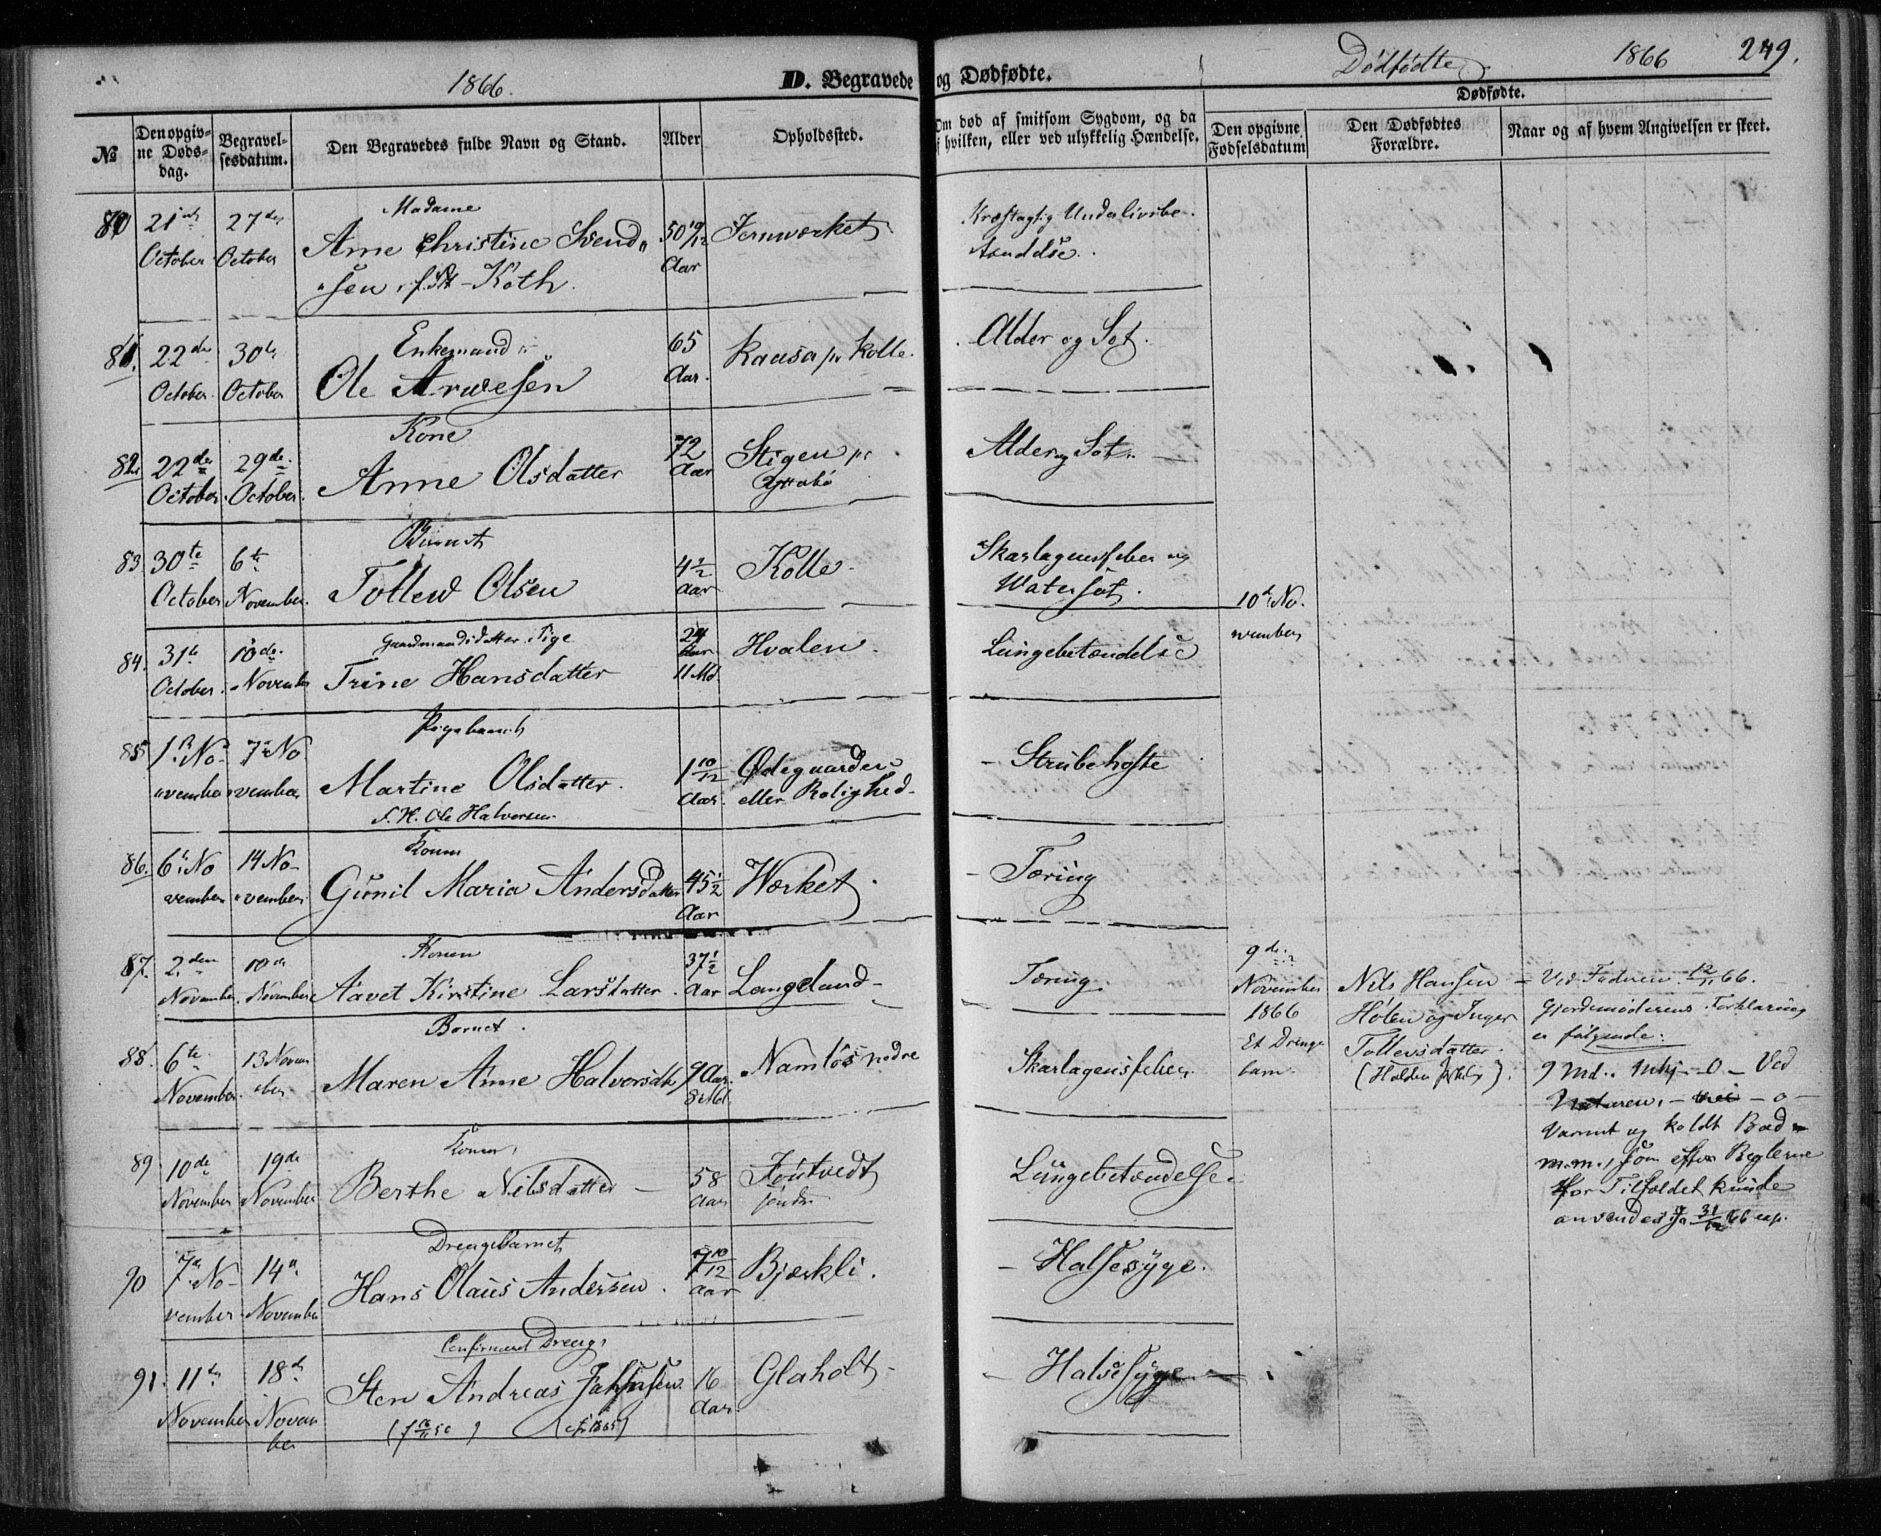 1866.
D. Begravede og Dødfødte.
Dødfødte.
1866
249.
№
Den opgiv-
ne Døds-
dag.
Begravel-
sesdatum.
Den Begravedes fulde Navn og Stand.
Alder
Opholdssted.
Om død af smitsom Sygdom, og da
af hvilken, eller ved ulykkelig Hændelse.
Dødfødte.
Den opgivne
Fødselsdatum
Den Dødfødtes
Forældre.
Naar og af hvem Angivelsen er skeet.
80
21
October
27de
October
Madame
Anne Christine Svend
sen, Koth.
50
Aar
Jernværket
Kræftagtig Underlivsbe-
tændelse.
81.
22de
October
30te
October
Enkemand
Ole Arvesen
65
Aar.
Rausa pr Kolle.
Alder og Sot.
82
22de
October
29de
October.
Kone
Anne Olsdatter
72
Aar
Stigen pr
Alder og Sot.
83.
30te
October
6te
November.
Barnet
Tollew Olsen
4½
Aar
Kolle
Skarlagensfeber og
Watersot.
10de No-
vember
84.
31te
October.
10de
November
Gaardmandsdatter, Pige
Trine Hansdatter
24
Aar
11 Md.
Hvalen.
Lungebetændelse
85
1ste No-
vember
7de No
vember
Pigebarnet
Martine Olsdatter.
F. H. Ole Halvorsen
1 10/12
Aar.
Ødegaarden
eller Rolighed
Strubehoste
86.
6te No
vember
14 No-
vember.
Konen
Gunil Maria Andersdatter
45½
Aar
Værket
Tæring
87.
2den
November.
10de
November
Konen
Aavet Kirstine Larsdatter.
37½
Aar
Langeland
Tæring.
9de
November
1866
Et Drenge
barn.
Nils Hansen
Holen og Inger
Tollevsdatter
Ved Faderen 12/11 66.
Gjordemoderens Forklaring
er følgende:
9 Md. - 0 - Ved
Naturen. - o -
Varmt og koldt Bad
m.m., som efter Reglerne
for Tilfældet kunde
anvendes 31/12 66
88.
6te
November.
13 Novem
ber
Barnet.
Maren Anne Halvorsdtr
9 Aar.
8 Md.
Namløs nedre
Skarlagensfeber
89
10de
November
19de
November
Konen
Berthe Nilsdatter
58
Aar
Foutvedt
søndre
Lungebetændelse.
90
7de No-
vember
14de
November
Drengebarnet
Hans Olaus Andersen.
10/12
Aar
Bjærkli.
Halsesyge.
91.
11te
November
18de
Novem
ber
Confirmeret Dreng
Sten Andreas
16
Aar.
Glaholt
Halsesyge